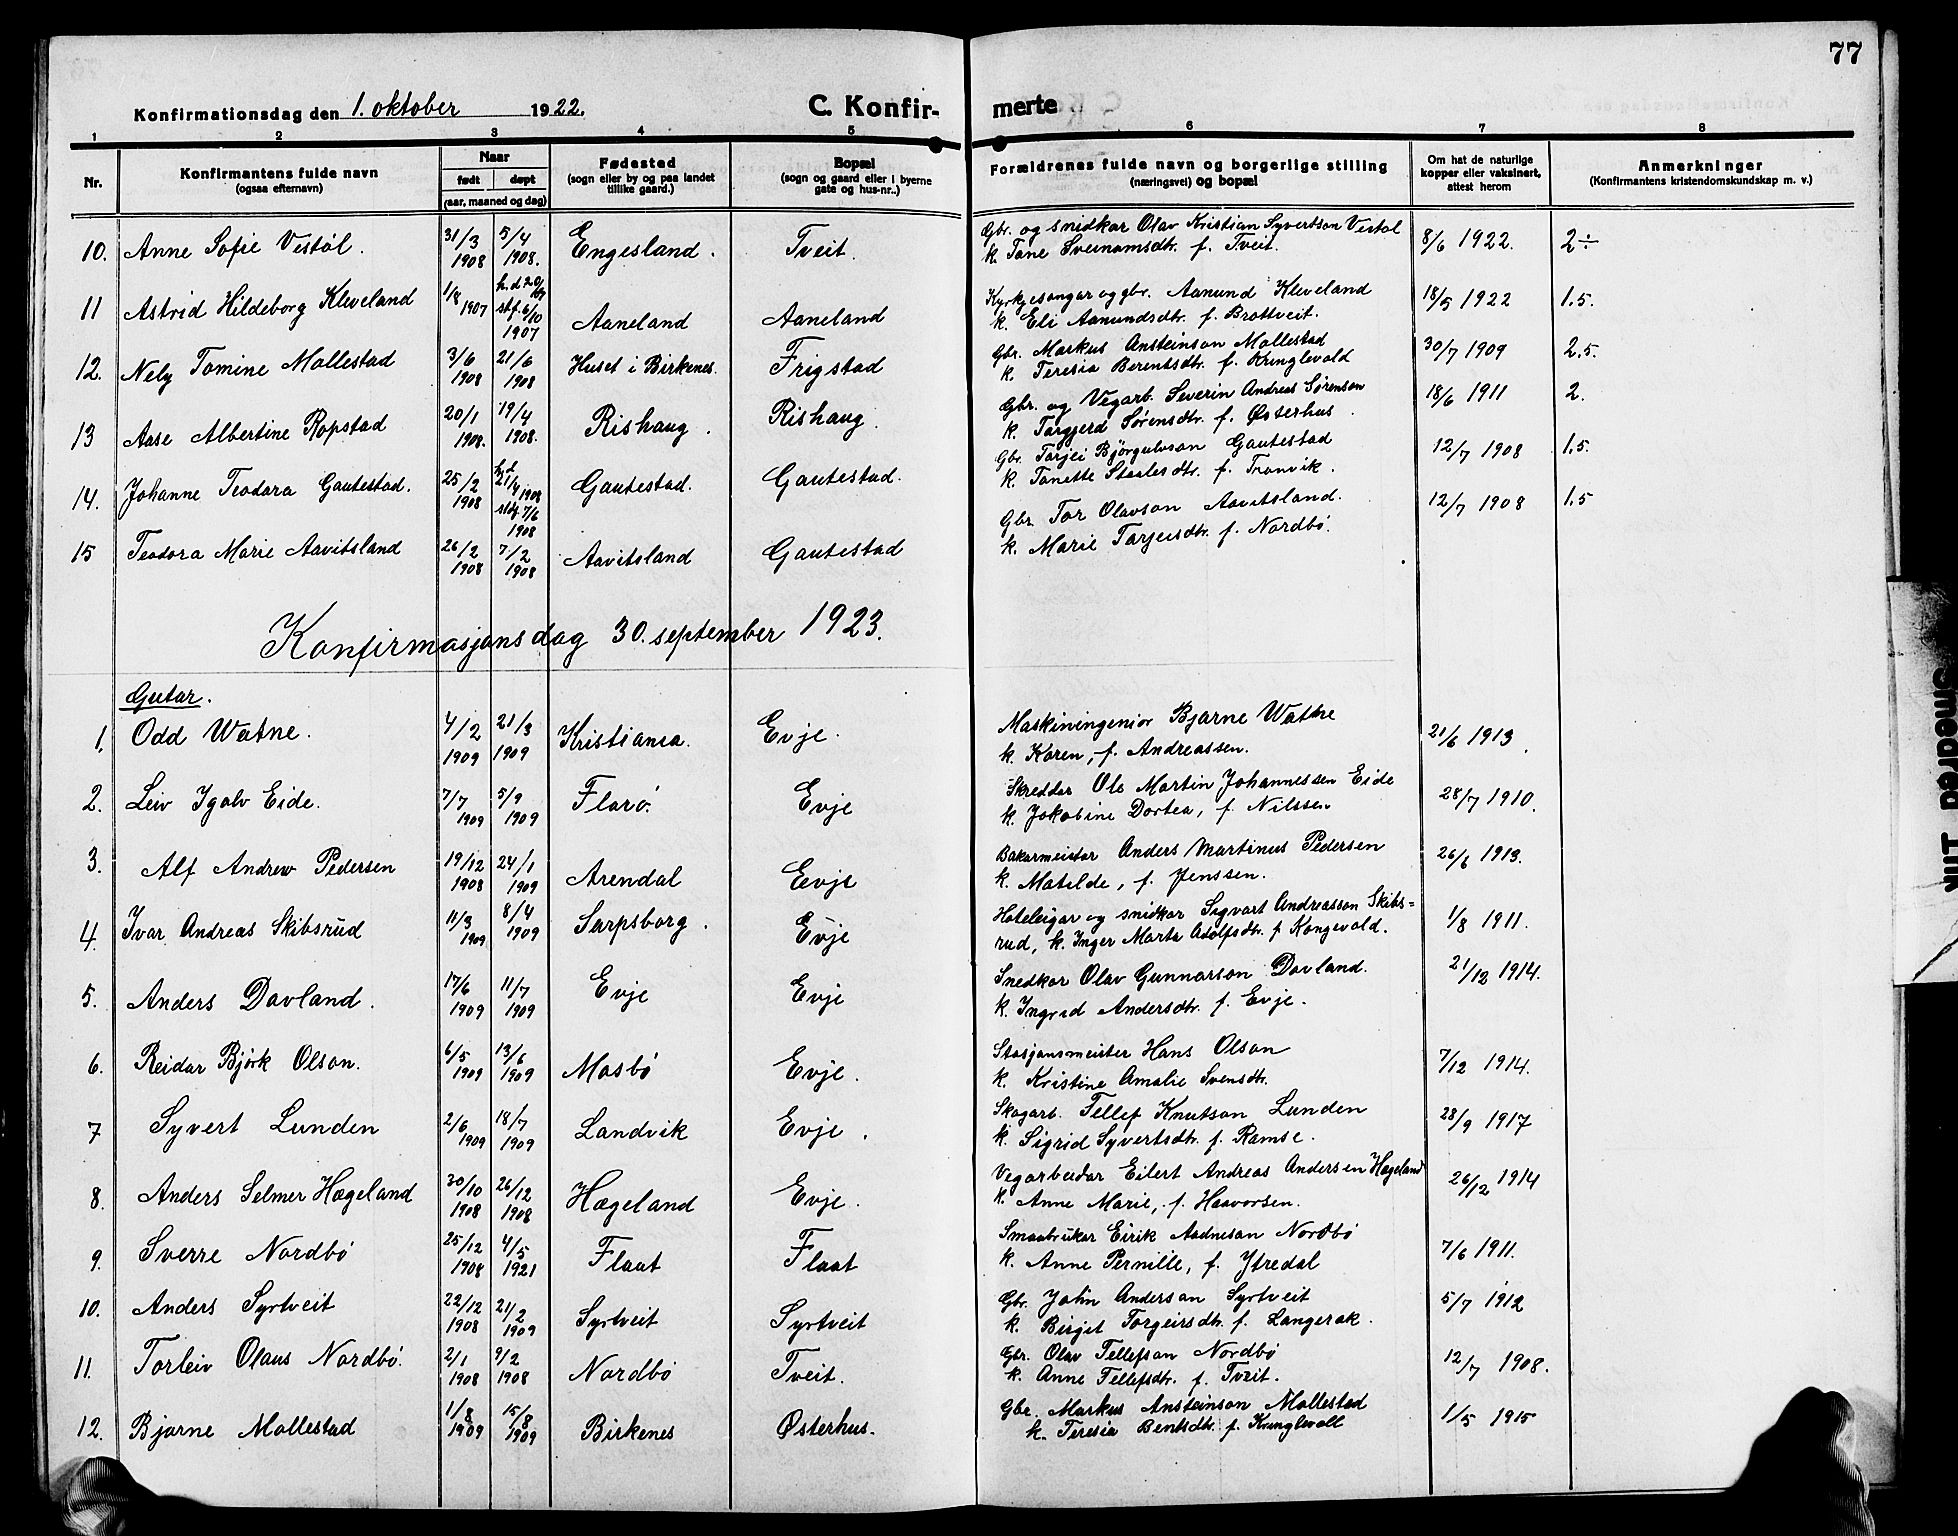 77
Konfirmationsdag den 1. oktober 1922. C. Konfir- merte
1 2 3 4 5 6 7 8
Nr. Konfirmantens fulde navn (ogsaa efternavn) Naar født døpt (aar, maaned og dag) Fødested (sogn eller by og paa landet tillike gaard.) Bopæl (sogn og gaard eller i byerne gate og hus-nr..) Forældrenes fulde navn og borgerlige stilling (næringsvei) og bopæl Om hat de naturlige kopper eller vaksinert, attest herom Anmerkninger (Konfirmantens kristendomskundskap m. v.)
10. Anne Sofie Vestøl. 31/3 1908 5/4 1908. Engesland. Tveit. Gbr. og snidkar Olav Kristian Syvertson Vestøl 8/6 1922. 2÷
k. Tone Sveinamsdtr. f. Tveit.
11 Astrid Hildeborg Kleveland 1/8 1907 h.d 20/ stf. 6/10 1907 Aaneland Aaneland Kyrkjesongar og gbr. Aanund Kleveland 18/5 1922 1.5.
k. Eli Aanundsdtr. f. Brottveit.
12. Nely Tomine Mollestad 3/6 1908 21/6 1908 Huset i Birkenes. Frigstad Gbr. Markus Ansteinson Mollestad 30/7 1909 2.5.
k. Teresia Berentsdtr. f. Kringlevold
13 Aase Albertine Ropstad 20/1 1908. 19/4 1908. Rishaug. Rishaug. Gbr. og Vegarb. Severin Andreas Sørenson 18/6 1911 2.
k. Torgjerd Sørensdtr. f. Østerhus.
14. Johanne Teodora Gautestad. 25/2 1908 hd 21/4 1908 stdf 7/6 1908 Gautestad. Gautestad. Gbr. Tarjei Bjørgulvson Gautestad 12/7 1908 1.5.
k. Tonette Staalesdtr. f. Tronvik.
15 Teodora Marie Aavitsland 26/2 1908 7/2 1908 Aavitsland Gautestad Gbr Tor Olavson Aavitsland. 12/7 1908 1.5
k. Marie Tarjeisdtr. f. Nordbø.
Konfirmasjonsdag 30. september 1923.
Gutar.
1. Odd Watne. 4/2 1909 21/3 1909 Kristiania. Evje. Maskiningeniør Bjarne Wathe 21/6 1913.
k. Karen, f. Andreassen.
2. Leiv Igolv Eide. 7/7 1909 5/9 1909 Florø. Evje Skreddar Ole Martin Johannessen Eide 28/7 1910.
k. Jakobine Dortea, f. Nilssen
3. Alf Andrew Pedersen 19/12 1908 24/1 1909 Arendal Evje Bakarmeister Anders Martinus Pedersen 26/6 1913.
k. Matilde, f. Jenssen.
4. Ivar Andreas Skibsrud 11/3 1909 8/4 1909 Sarpsborg. Evje Hoteleigar og snidkar Sigvart Andreasson Skibs= 1/8 1911.
rud, k. Inger Marta Adolfsdtr. f Kongevold.
5. Anders Dovland. 17/6 1909 11/7 1909 Evje Evje Snedkar Olav Gunnarson Dovland. 21/12 1914.
k. Ingrid Andersdtr. f. Evje.
6. Reidar Bjørk Olson. 6/5 1909 13/6 1909 Mosbø Evje. Stasjonsmeister Hans Olson 7/12 1914.
k. Kristine Amalie Svensdtr.
7 Syvert Lunden 2/6 1909 18/7 1909 Landvik Evje. Skogarb. Tellef Knutson Lunden 28/9 1917
k. Sigrid Syvertsdtr. f. Ramse.
8. Anders Selmer Hægeland 30/10 1908 26/12 1908 Hægeland Evje. Vegarbeidar Eilert Andreas Andersen Hægeland 26/12 1914
k. Anne Marie, f. Haavorsen.
9. Sverre Nordbø 25/12 1908 4/5 1921 Flaat Flaat Smaabrukar Eirik Aadneson Nordbø 7/6 1911.
k. Anne Pernille, f. Ytredal
10. Anders Syrtveit 22/12 1908 21/2 1909 Syrtveit Syrtveit Gbr. John Anderson Syrtveit 5/7 1912
k. Birgit Torgeirsdtr. f. Langerak.
11. Torleiv Olaus Nordbø. 2/1 1908 9/2 1908 Nordbø Tveit. Gbr. Olav Tellefson Nordbø 12/7 1908.
k. Anne Tellefsdtr. f. Tveit.
12. Bjarne Mollestad 1/8 1909 15/8 1909 Birkenes Østerhus. Gbr. Markus Ansteinson Mollestad 1/5 1915
k. Teresia Bentsdtr. f. Kringlevoll